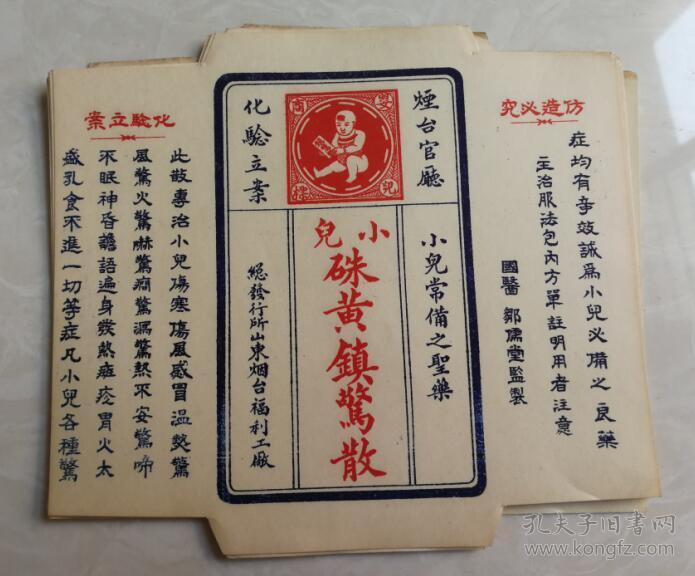 仿造必究
症均有奇效誠爲小兒必備之良藥
主治服法包內方單註明用者注意
國醫鄒儒堂監製
煙台官廳
化驗立案
嬰兒商標
小兒常備之聖藥
小兒
硃黃鎮驚散
總發行所山東烟台福利工廠
化驗立案
此散專治小兒傷寒傷風感冒溫熱驚
風驚火驚嚇驚癇驚漏驚熱不安驚啼
不眠神昏譫語遍身發熱斑疹胃火太
盛乳食不進一切等症凡小兒各種驚
孔夫子旧书网
www.kongfz.com